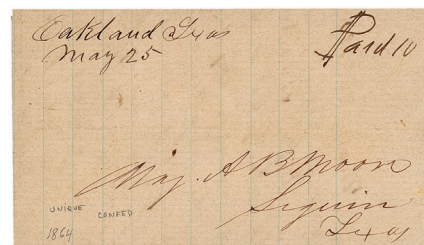 Oakland Texas
May 25
Paid 10
Maj. A B Moore
Seguin
Texas
UNIQUE
CONFED
1864